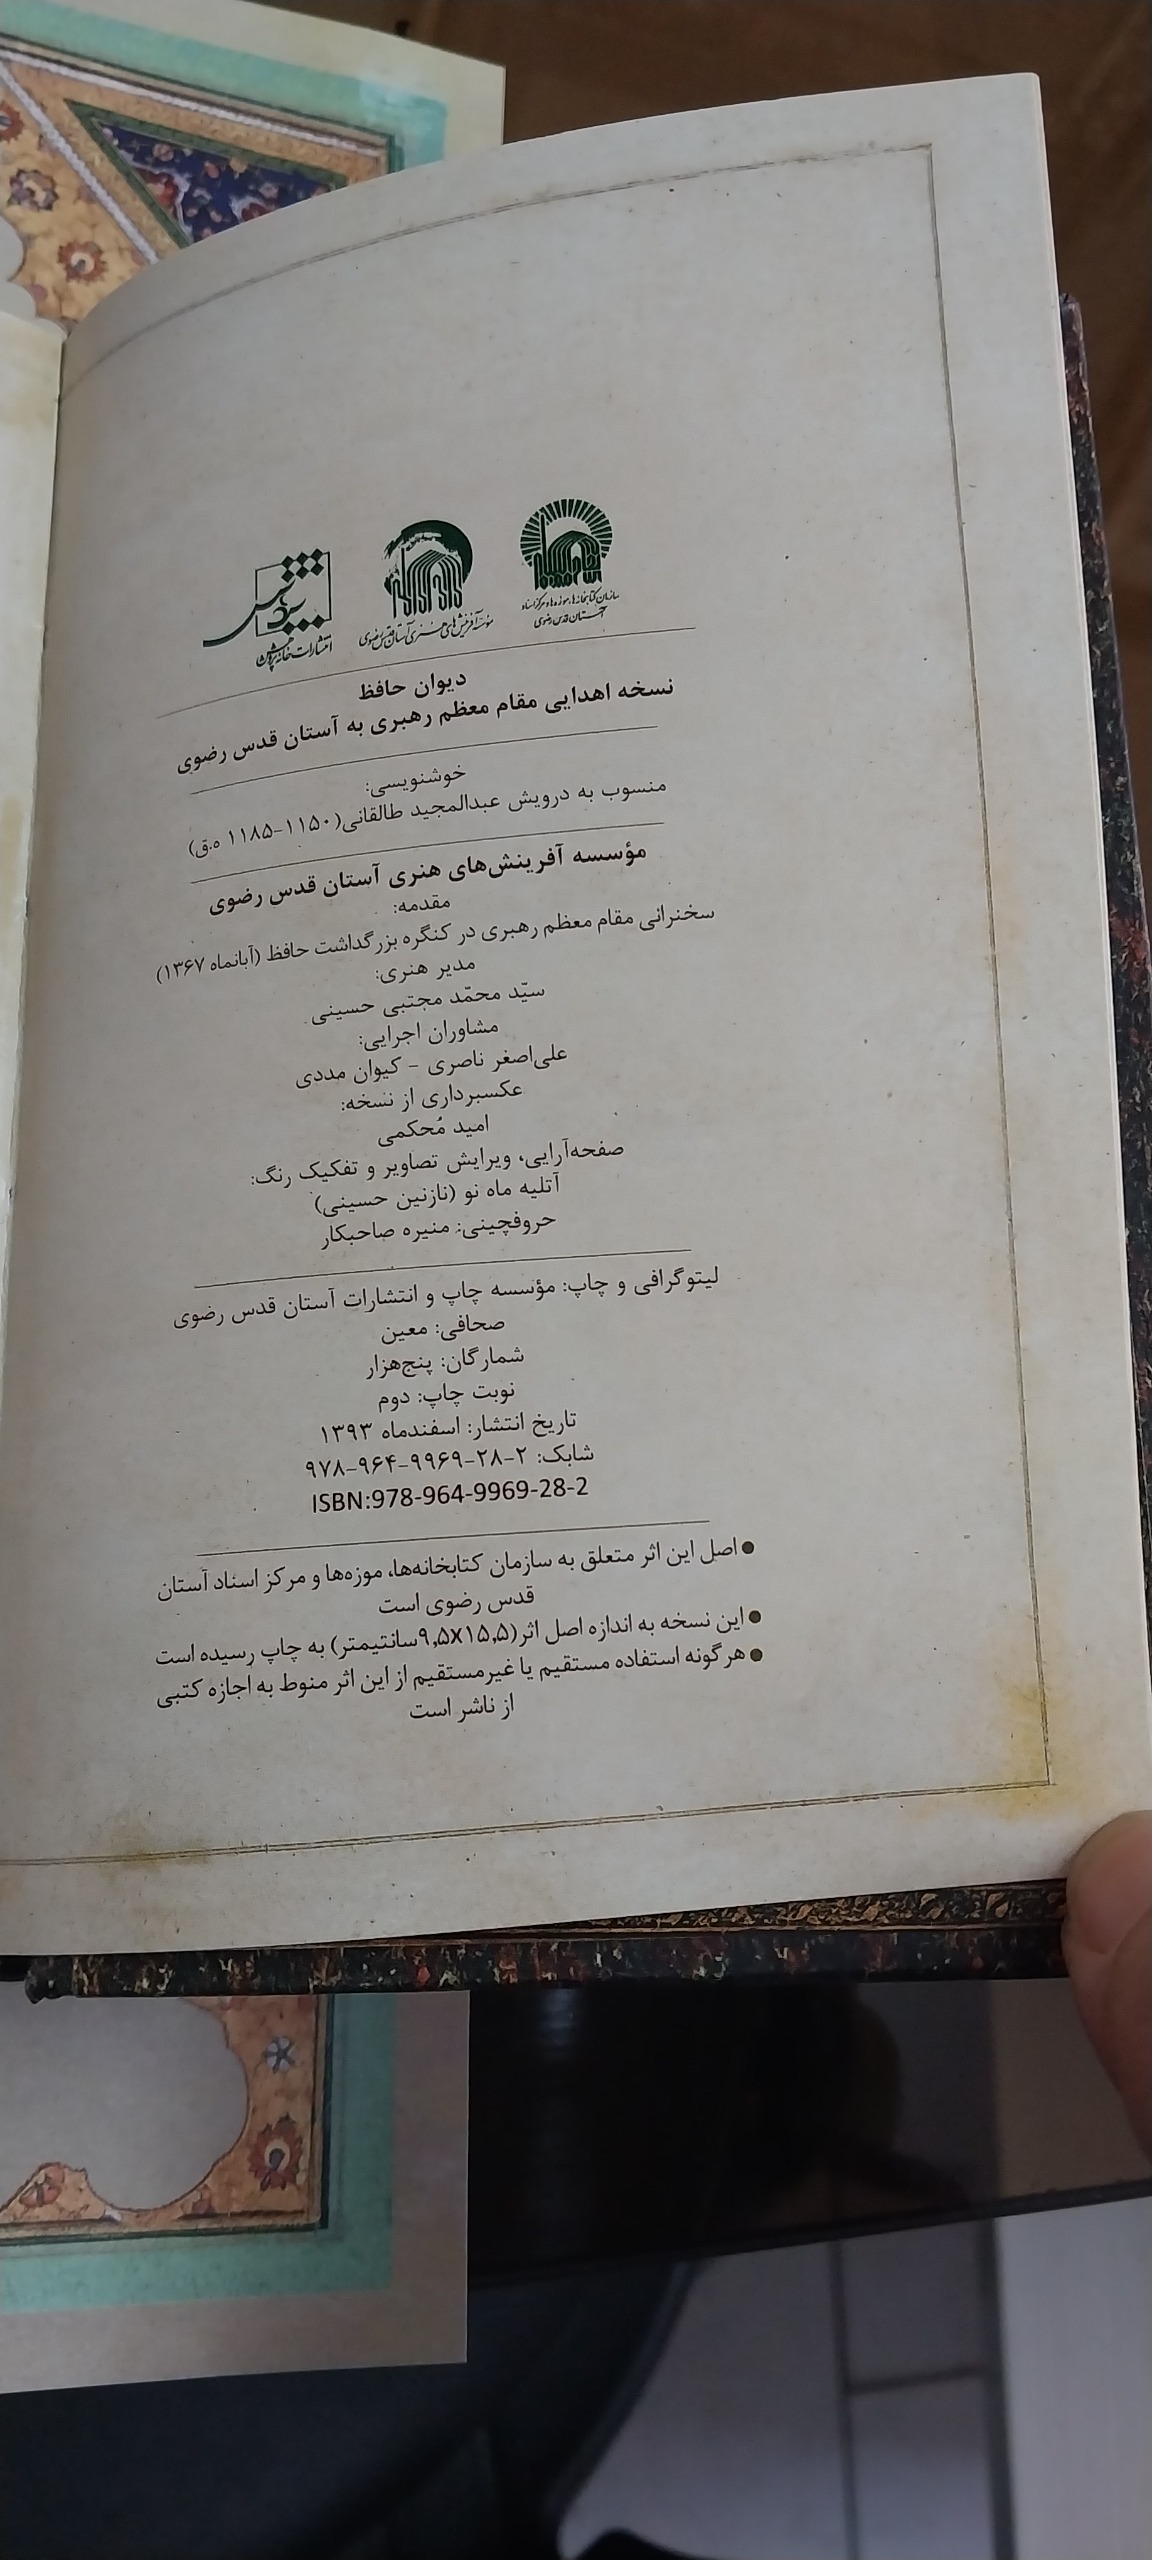 سازمان کتابخانه‌ها، موزه‌ها و مرکز اسناد
آستان قدس رضوی
مؤسسه آفرینش‌های هنری آستان قدس رضوی
انتشارات خانه پژوهش
دیوان حافظ
نسخه اهدایی مقام معظم رهبری به آستان قدس رضوی
خوشنویسی:
منسوب به درویش عبدالمجید طالقانی(۱۱۵۰-۱۱۸۵ ه.ق)
مؤسسه آفرینش‌های هنری آستان قدس رضوی
مقدمه:
سخنرانی مقام معظم رهبری در کنگره بزرگداشت حافظ (آبانماه ۱۳۶۷)
مدیر هنری:
سیّد محمّد مجتبی حسینی
مشاوران اجرایی:
علی‌اصغر ناصری - کیوان مددی
عکسبرداری از نسخه:
امید مُحکمی
صفحه‌آرایی، ویرایش تصاویر و تفکیک رنگ:
آتلیه ماه نو (نازنین حسینی)
حروفچینی: منیره صاحبکار
لیتوگرافی و چاپ: مؤسسه چاپ و انتشارات آستان قدس رضوی
صحافی: معین
شمارگان: پنج‌هزار
نوبت چاپ: دوم
تاریخ انتشار: اسفندماه ۱۳۹۳
شابک: ۲-۲۸-۹۹۶۹-۹۶۴-۹۷۸
ISBN:978-964-9969-28-2
● اصل این اثر متعلق به سازمان کتابخانه‌ها، موزه‌ها و مرکز اسناد آستان
قدس رضوی است
● این نسخه به اندازه اصل اثر(۹,۵x۱۵,۵سانتیمتر) به چاپ رسیده است
● هرگونه استفاده مستقیم یا غیرمستقیم از این اثر منوط به اجازه کتبی
از ناشر است